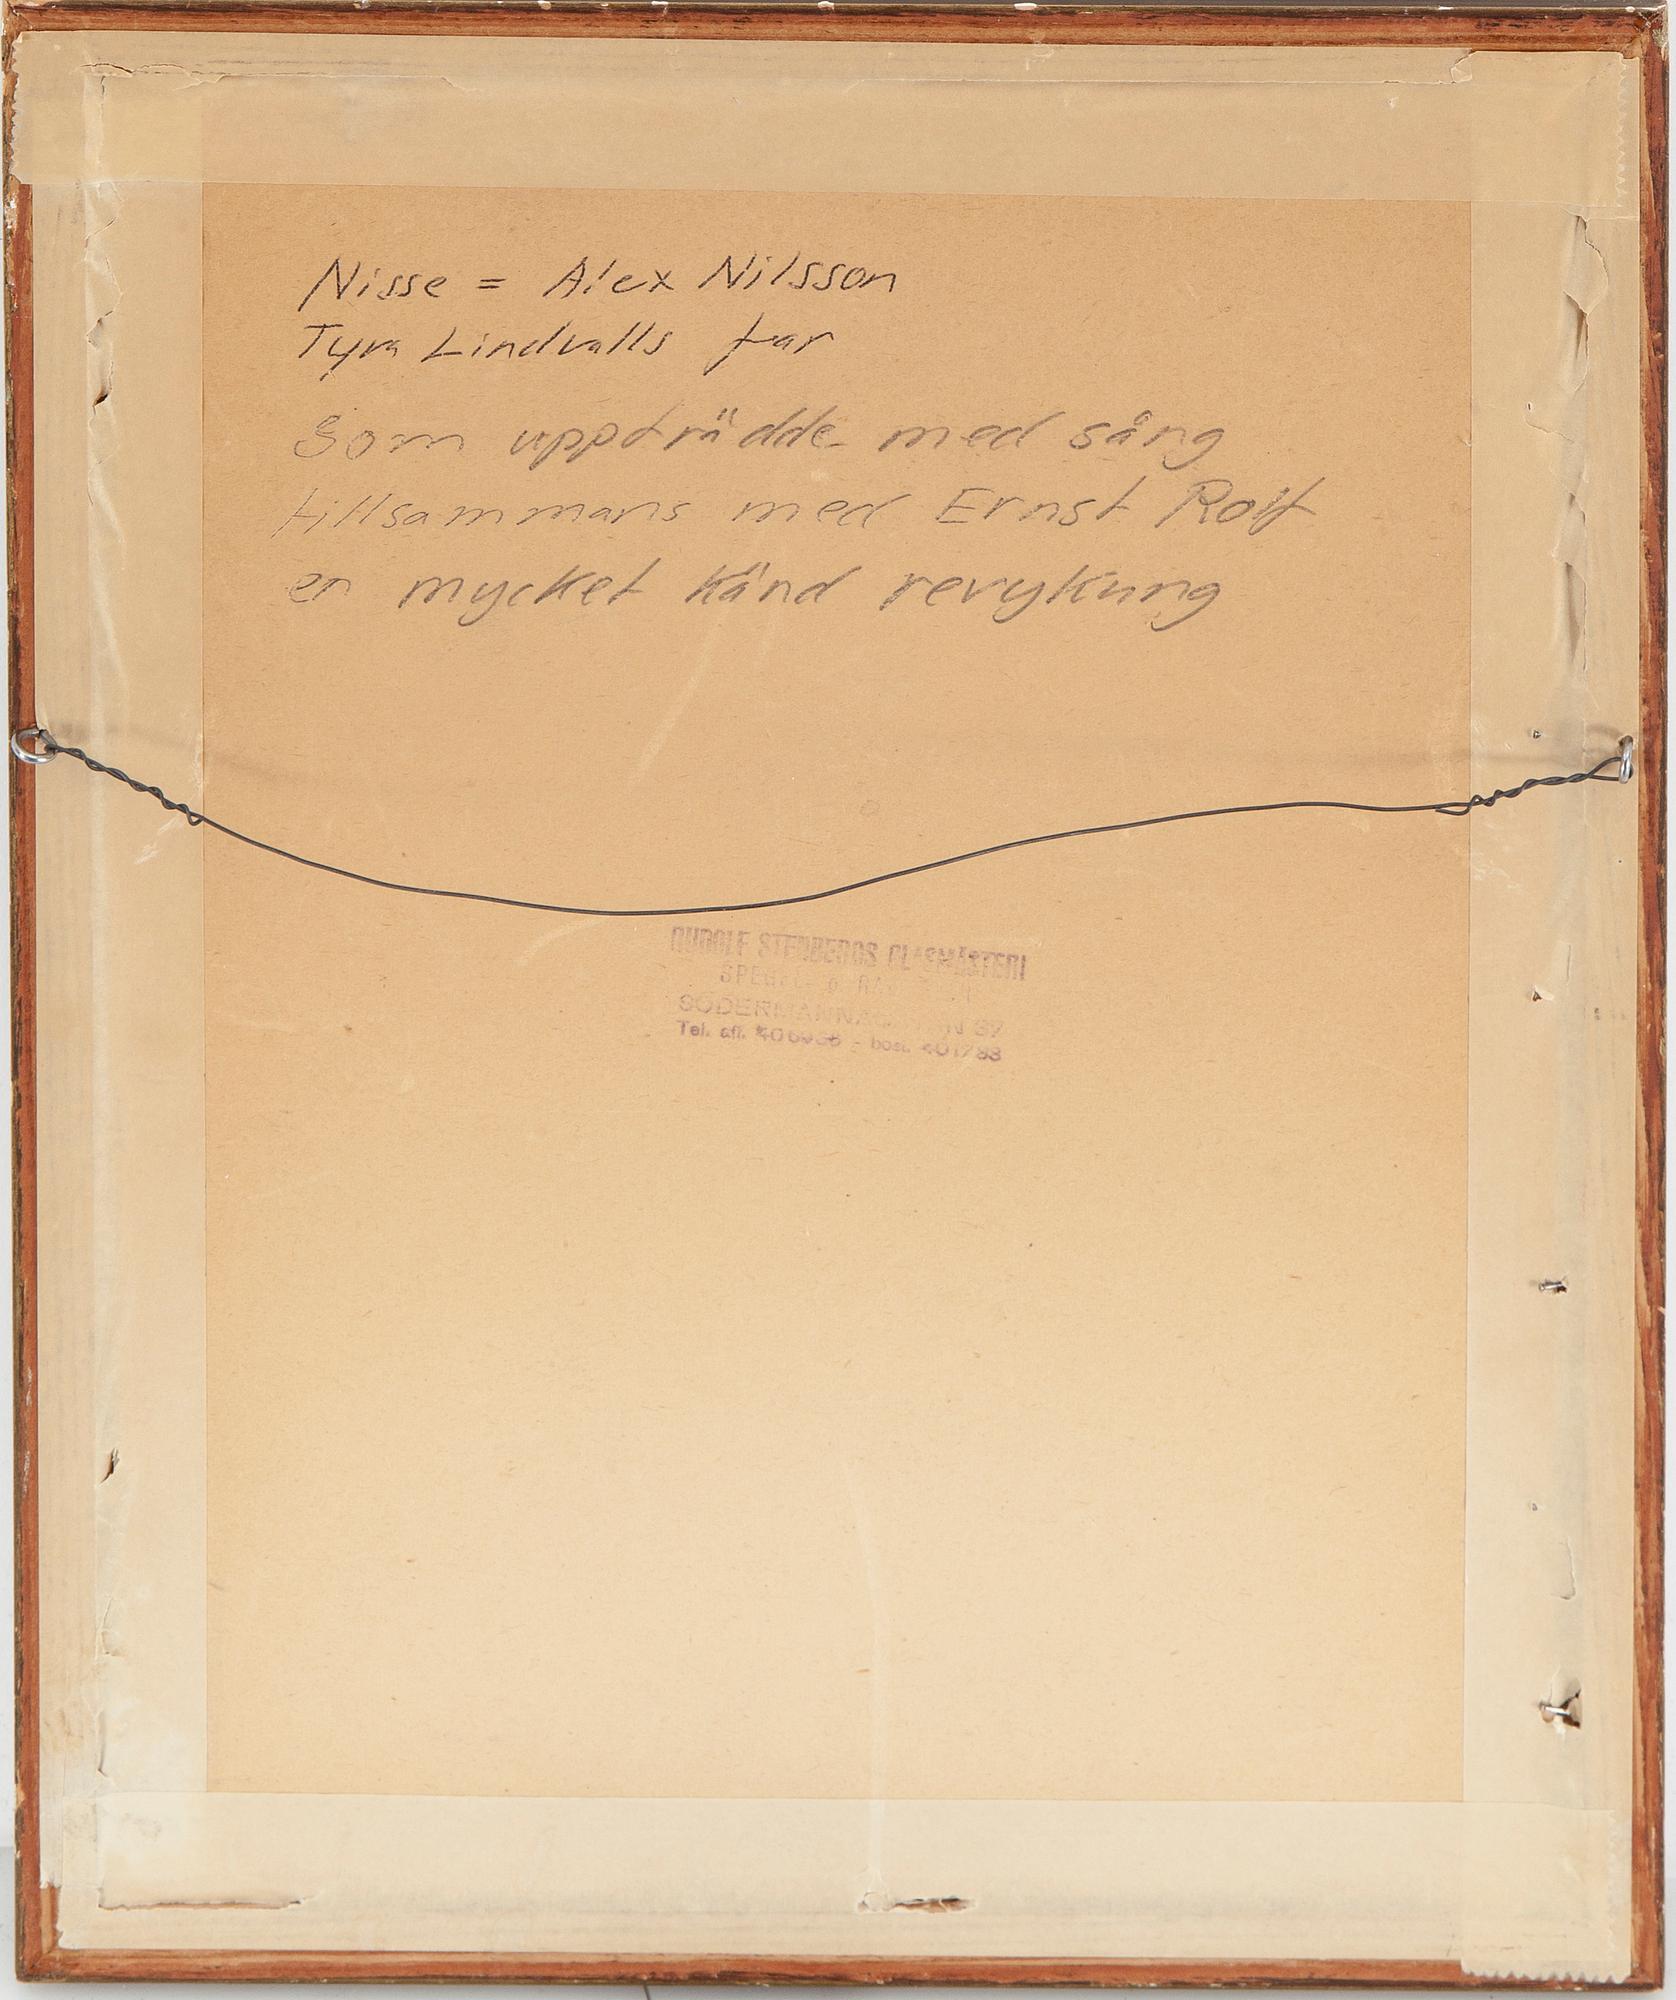 Nisse = Alex Nilsson
Tyra Lindvalls far
Som uppträdde med sång
tillsammans med Ernst Rolf
en mycket känd revykung
RUDOLF STENBERGS GLASMÄSTERI
SPEGEL- &
37
Tel. aff. - bost. 401783